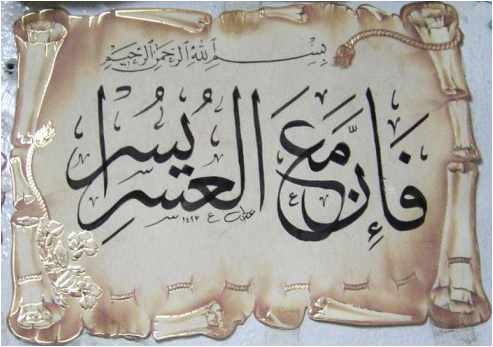 بِسْمِ اللهِ الرَّحْمٰنِ الرَّحِيْمِ
فَإِنَّ مَعَ الْعُسْرِ يُسْرًا
١٤٢٣